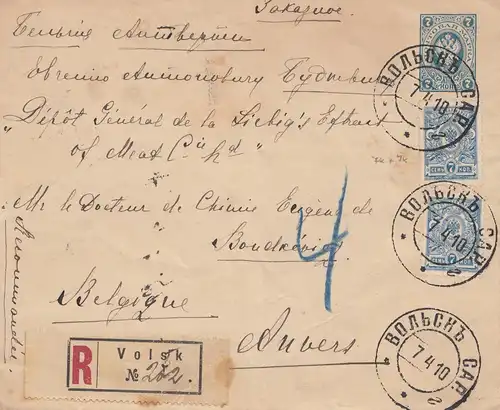 Заказное.
Бельгія Антверпен
Евгенію Антоновичу
„Dépôt Général de la Liebig's Extract
of Meat Cie Ld"
Mr le Docteur de Chimie Eugène de
Boudkévicz
Belgique
Anvers
Recommandée
4
R
Volsk
№ 252.
ВОЛЬСКЪ САР.
7 4 10
2
ВОЛЬСКЪ САР.
7 4 10
2
ВОЛЬСКЪ САР.
7 4 10
2
7
7
7
СЕМЬ 7 КОП.
СЕМЬ 7 КОП.